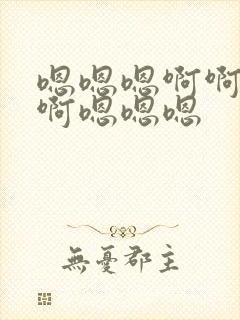 嗯嗯嗯啊啊
啊嗯嗯嗯
無憂郡主